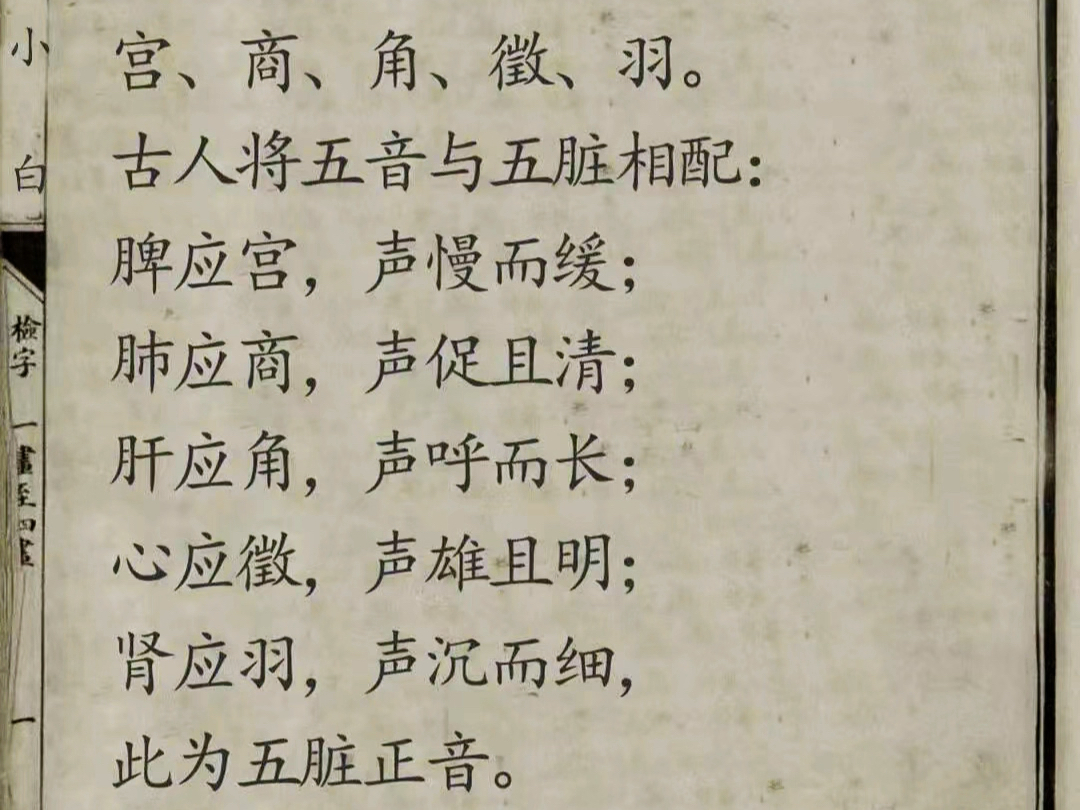 宫、商、角、徵、羽。
古人将五音与五脏相配：
脾应宫，声慢而缓；
肺应商，声促且清；
肝应角，声呼而长；
心应徵，声雄且明；
肾应羽，声沉而细，
此为五脏正音。
小白
檢字
一畫至四畫
一